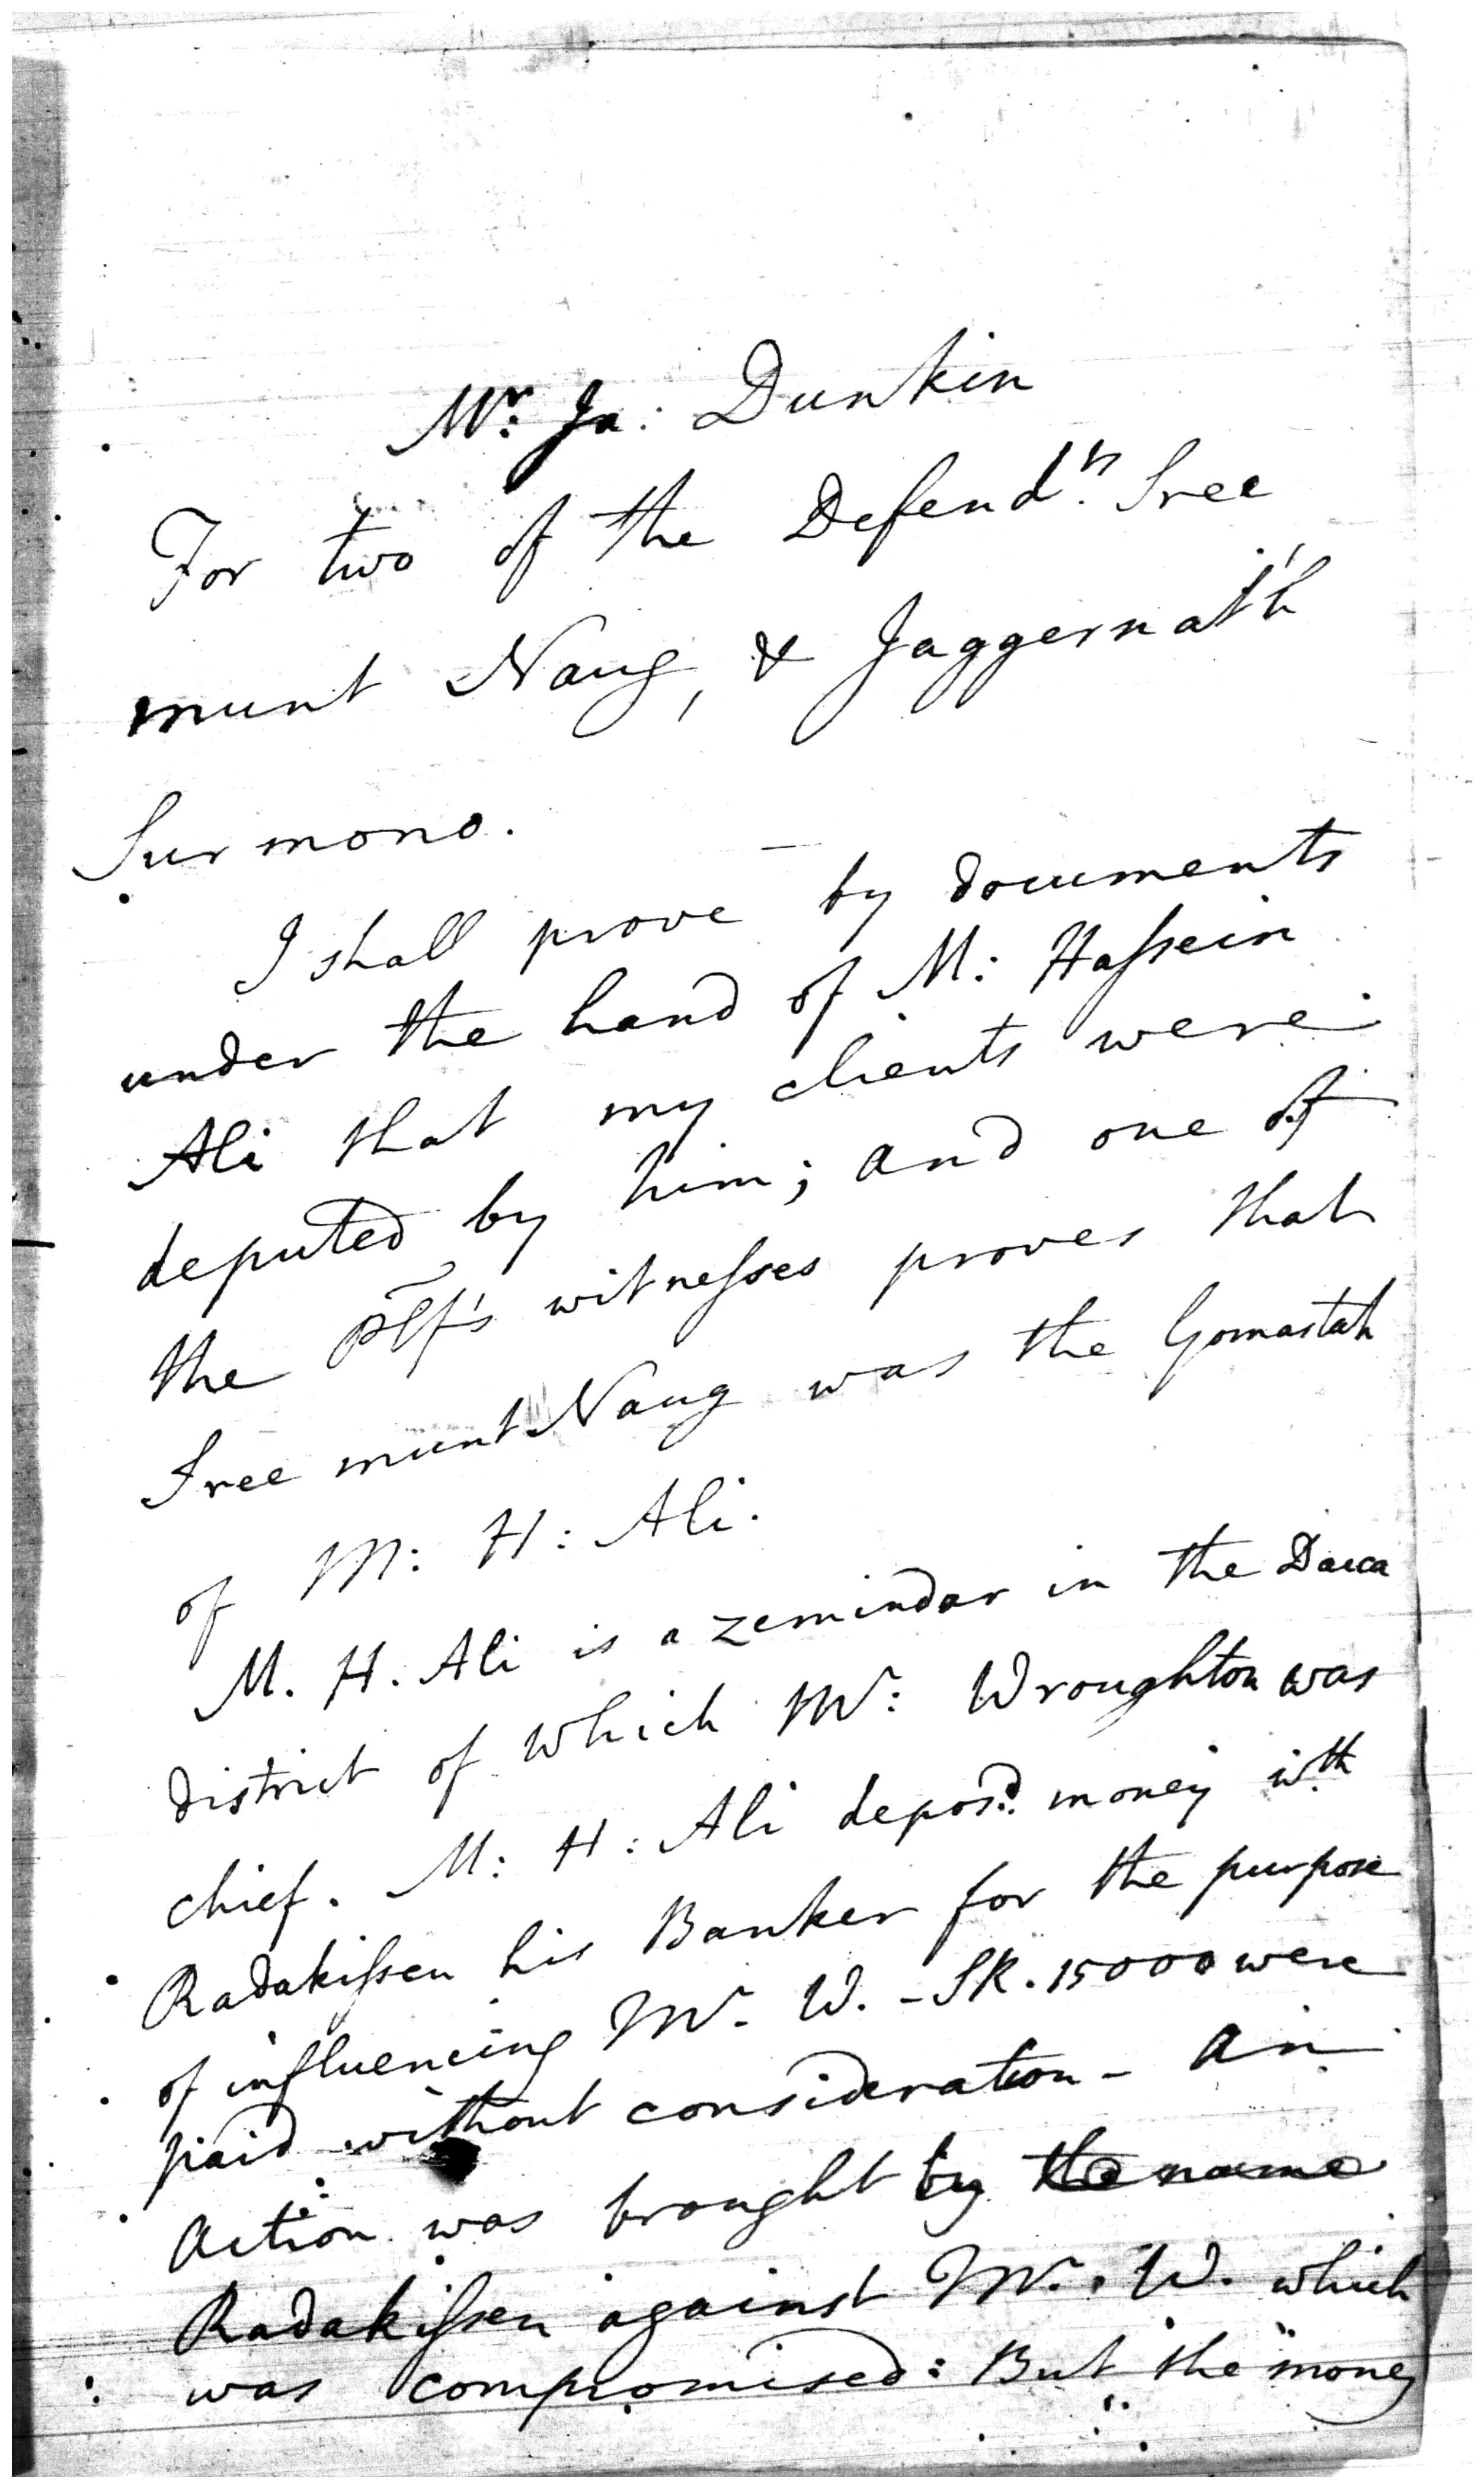 Mr: Ja: Dunkin
For two of the Defendts. Sree
munt Naug, & Jaggernath
Surmono.
I shall prove by documents
under the hand of M: Hassein
Ali that my clients were
deputed by him; and one of
the Plf's witnesses proves that
Sree munt Naug was the Gomastah
of M: H: Ali.
M. H. Ali is a zemindar in the Dacca
district of which Mr: Wroughton was
chief. M: H: Ali deposd. money wth
Radakissen his Banker for the purpose
of influencing Mr. W. - SR. 15000 were
paid without consideration - An
Action was brought by the name
Radakissen against Mr. W. which
was compromised: But the money